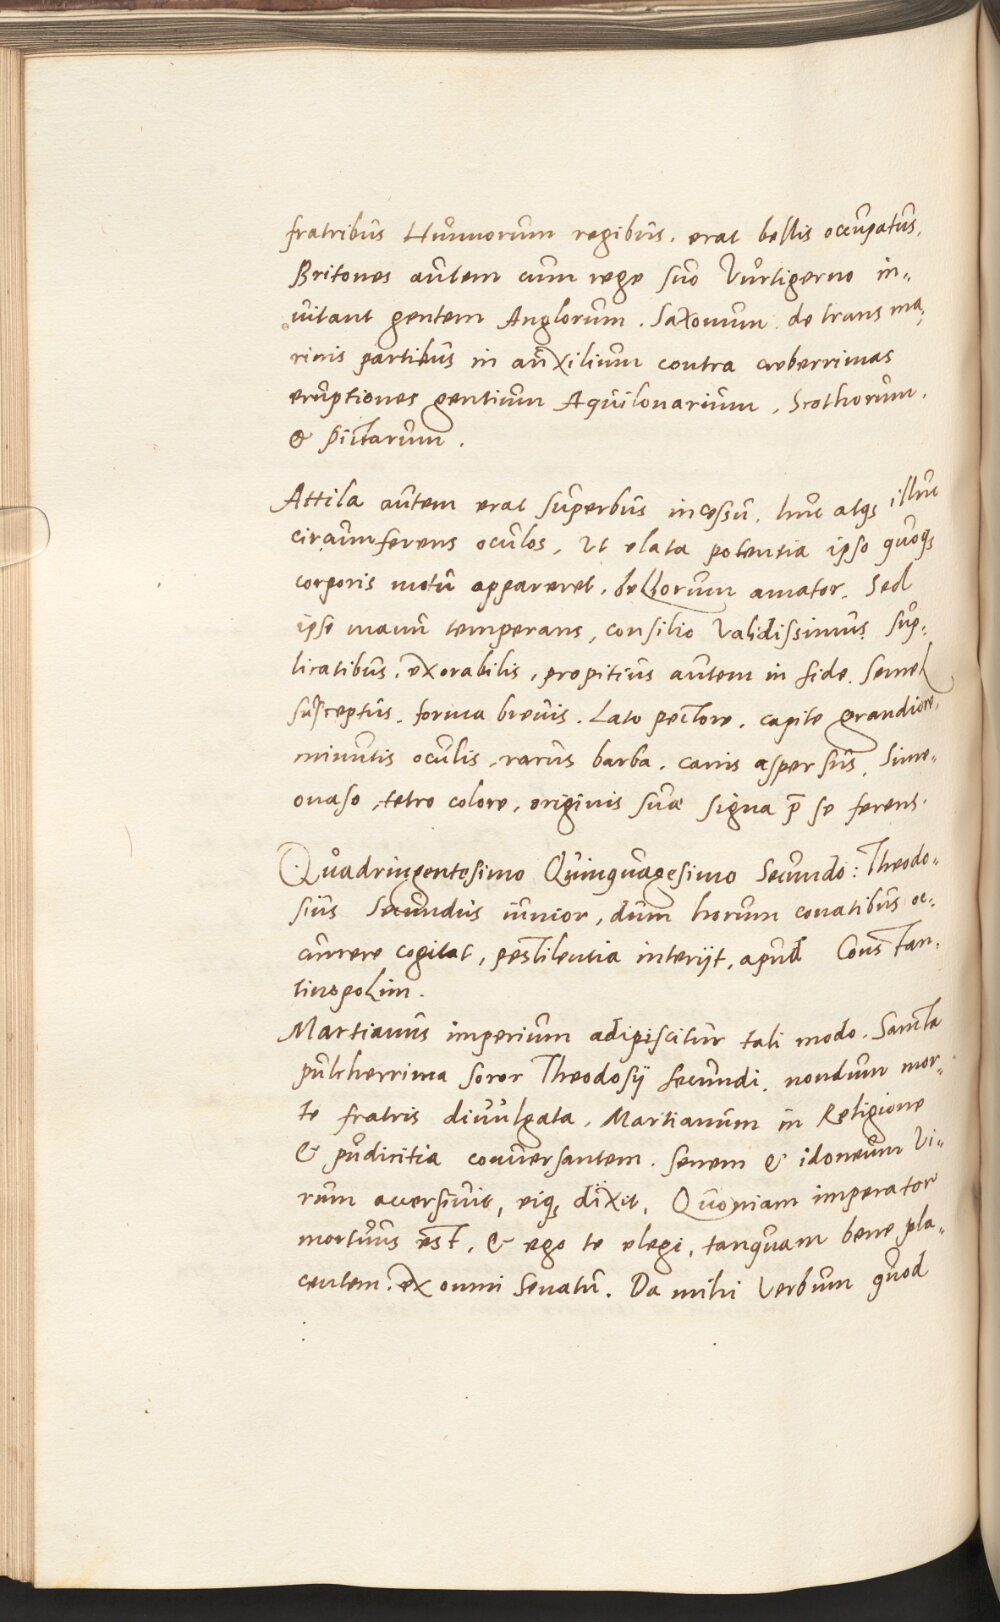 fratribus Hunnorum regibus. erat bellis occupatus.
Britones autem cum rege suo Vurtigerno in-
uitant gentem Anglorum. Saxonum. de trans ma,
rinis partibus in auxilium contra creberrimas
eruptiones gentium Aquilonarium, Scothorum.
& Pictarum.
Attila autem erat superbus incessu. huc atqs illuc
circumferens oculos, Vt elata potentia ipso quoqs
corporis motu appareret. bellorum amator. Sed
ipse manu temperans, consilio Validissimus, sup-
licatibus. exorabilis, propitius autem in fide. semel
susceptus. forma breuis. Lato pectore. capite grandiore,
minutis oculis, rarus barba. canis aspersus, Sime-
onaso, tetro colore, originis suæ signa p̄ se ferens.
Quadringentesimo Quinquagesimo Secundo: Theodo-
sius Secundus iunior, dum horum conatibus oc-
currere cogitat, pestilentia interijt, apud Constan-
tinopolim.
Martianus imperium adipiscitur tali modo. Sancta
pulcherrima soror Theodosij secundi, nondum mor-
te fratris diuulgata, Martianum in Religione
& pudicitia conuersantem. senem & idoneum Vi-
rum accersiuit, eiqs dixit, Quoniam imperator
mortuus est, & ego te elegi, tanquam bene pla-
centem. ex omni Senatu. Da mihi Verbum quod